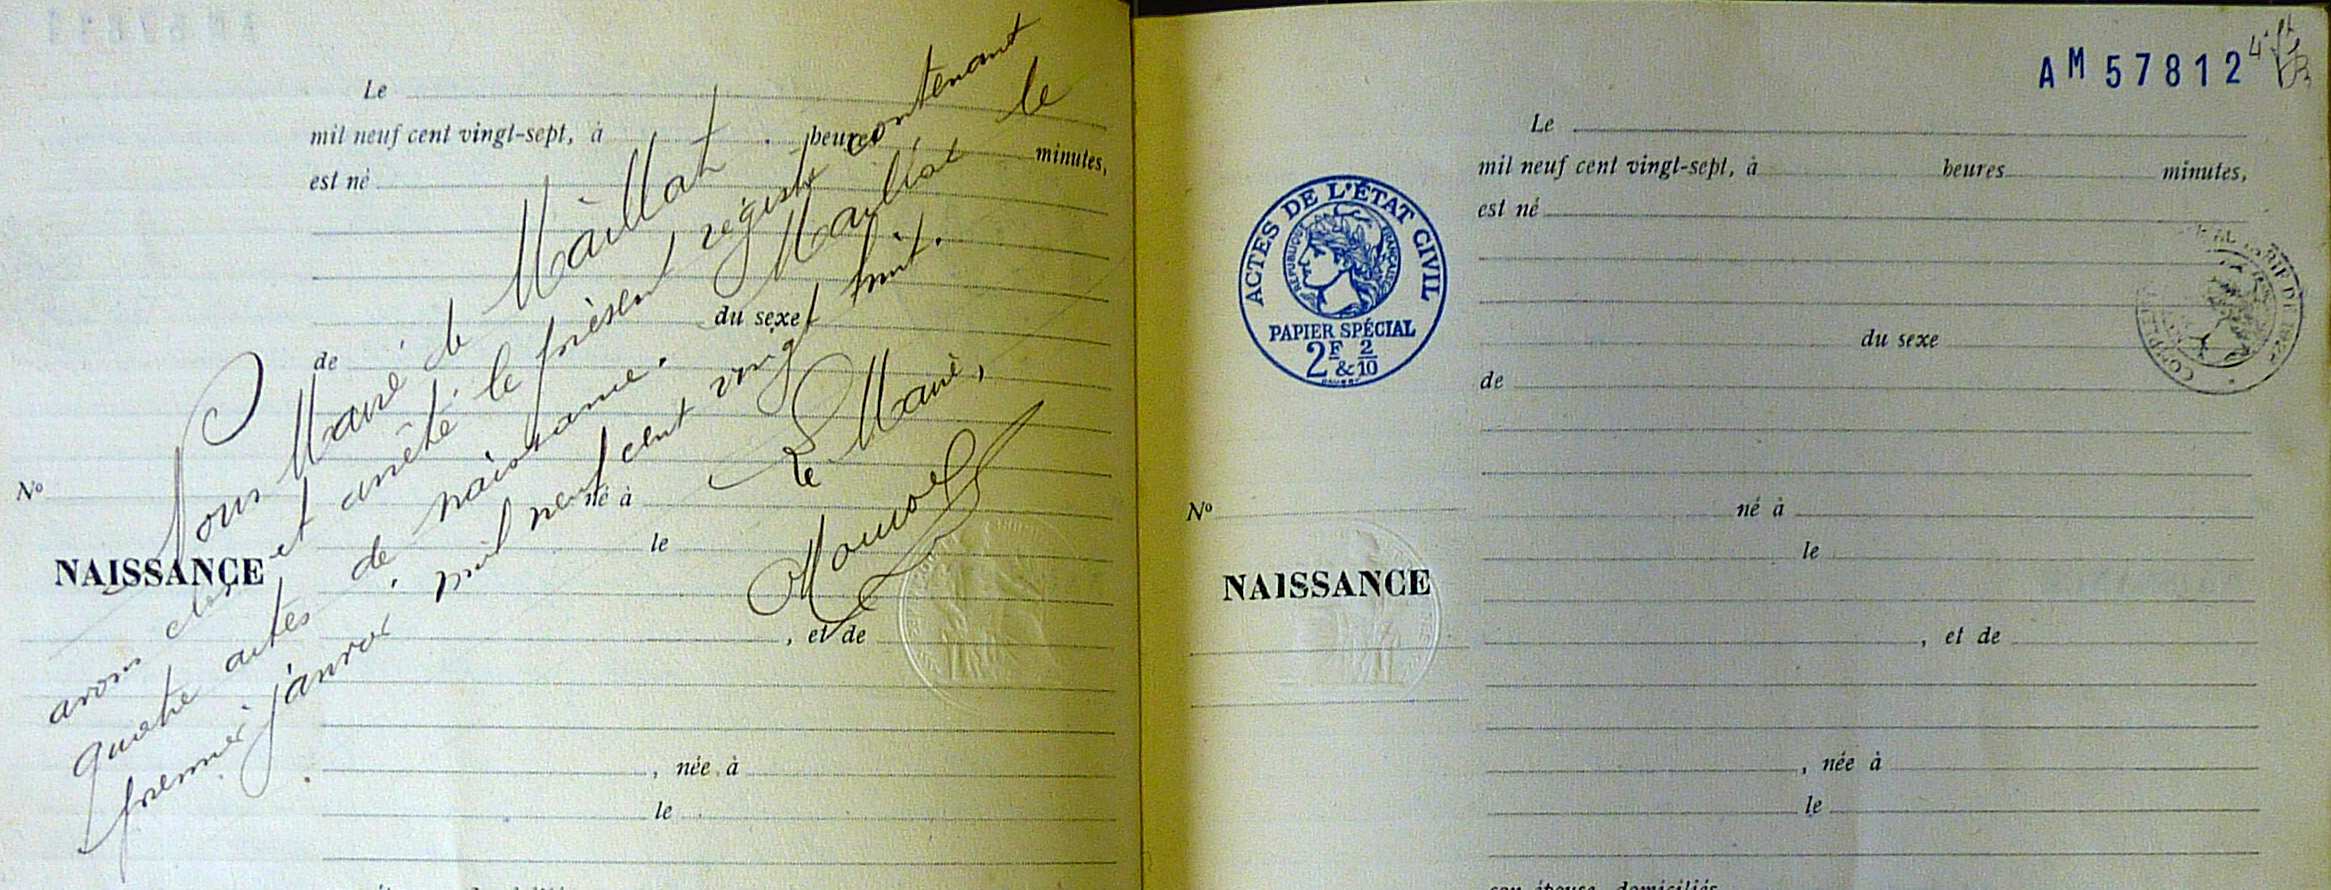 Le
mil neuf cent vingt-sept, à heures minutes,
est né
du sexe
de
Nº
né à
NAISSANCE
le
, et de
, née à
le
Nous Maire de Maillat
avons clos et arrêté le présent régistre contenant
quatre actes de naissance. Maillat le
premier janvier mil neuf cent vingt huit.
Le Maire,
AM 57812
Le
mil neuf cent vingt-sept, à heures minutes,
est né
ACTES DE L'ÉTAT CIVIL
RÉPUBLIQUE FRANÇAISE
PAPIER SPÉCIAL
2F & 2/10
du sexe
de
Nº
né à
le
NAISSANCE
, et de
, née à
le
son épouse, domiciliés